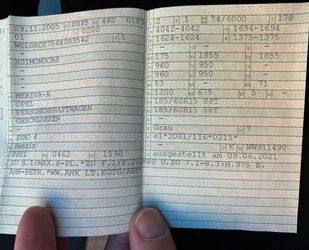 29.11.2005 0035 482 01F
01 0200
W0L0XCE7564083542 1
-
X01MONOCAB
-
-
MERIVA-A
OPEL
PERSONENKRAFTWAGEN
GESCHLOSSEN
-
EURO 4
Benzin
0001 0462 1598
2 1 74/6000 178
4042-4042 1694-1694
1624-1624 1375-1375
-
175 1855 1855
960 950 -
960 950 -
83 - 71
1200 675
185/60R15 88T
185/60R15 88T
-
Grau 7
e1*2001/116*0215*
- K WW911490
ausgestellt am 09.06.2021
ZU S.1:MAX.S-PL.*ZU F.1/F.2:
ANH-BETR.*WW.AHK LT.EGTG/ABE